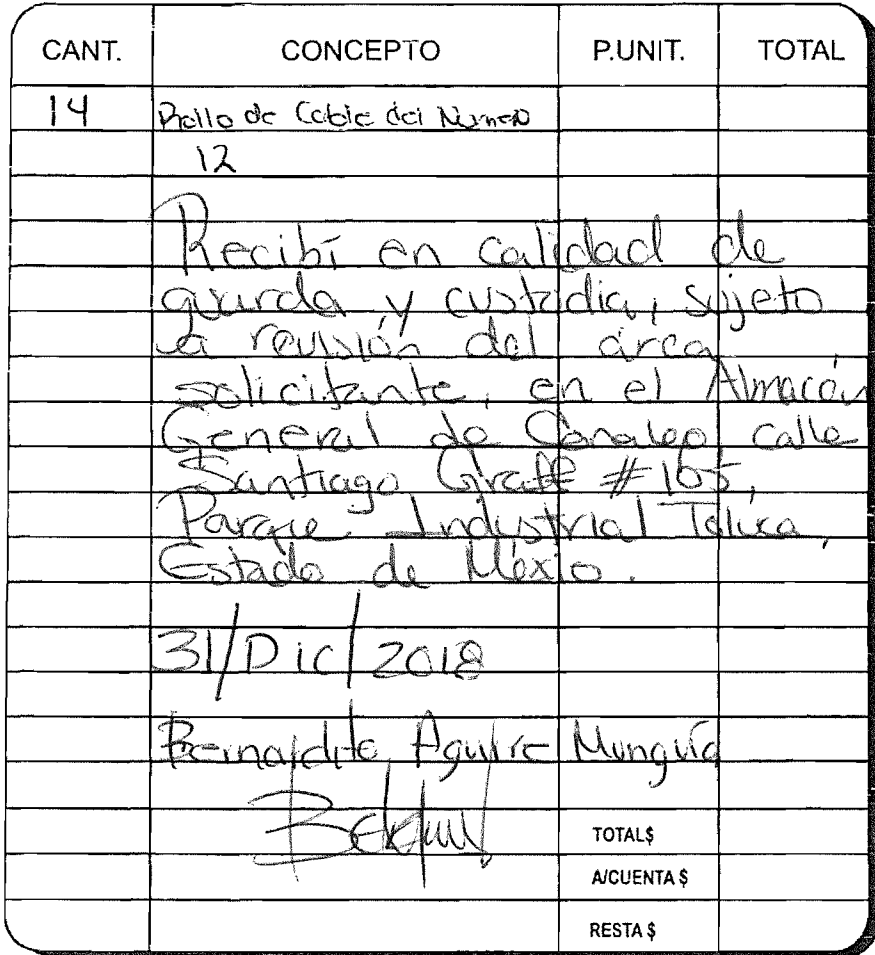 CANT. CONCEPTO P.UNIT. TOTAL
14 Rollo de Cable del Numero
12
Recibí en calidad de
guarda y custodia, sujeto
a revisión del área
solicitante, en el Almacén
General de Conalep calle
Santiago Graff #105,
Parque Industrial Toluca,
Estado de México.
31/Dic/2018
Bernardito Aguirre Munguía
TOTAL$
A/CUENTA $
RESTA $